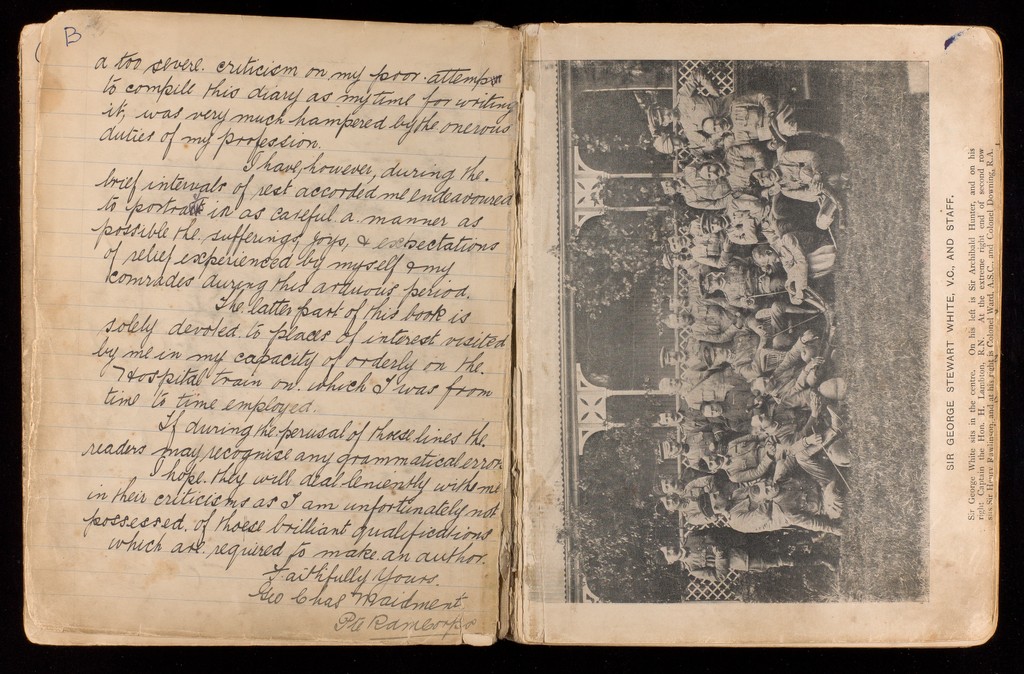 B
a too severe. criticism on my poor. attempt
to compile this diary as my time for writing
it, was very much hampered by the onerous
duties of my profession.
I have, however, during the.
brief intervals of rest accorded me endeavoured
to portrait in as careful. a. manner as
possible the. sufferings, joys, & expectations
of relief experienced by myself & my
comrades during this arduous period.
The latter part of this book is
solely devoted. to places of interest visited
by me in my capacity of orderly on the.
Hospital train on. which I was from
time to time employed.
If during the. perusal of those lines. the.
readers may recognise any grammatical error
I hope. they will deal leniently with me
in their criticisms as I am unfortunately not
possessed. of those brilliant qualifications
which are. required to make. an author.
Faithfully Yours.
Geo Chas Maidment.
Pte Ramcorps
SIR GEORGE STEWART WHITE, V.C., AND STAFF.
Sir George White sits in the centre. On his left is Sir Archibald Hunter, and on his
right Captain the Hon. H. Lambton, R.N. At the extreme right end of second row
sits Sir Henry Rawlinson, and at his right is Colonel Ward, A.S.C., and Colonel Downing, R.A.